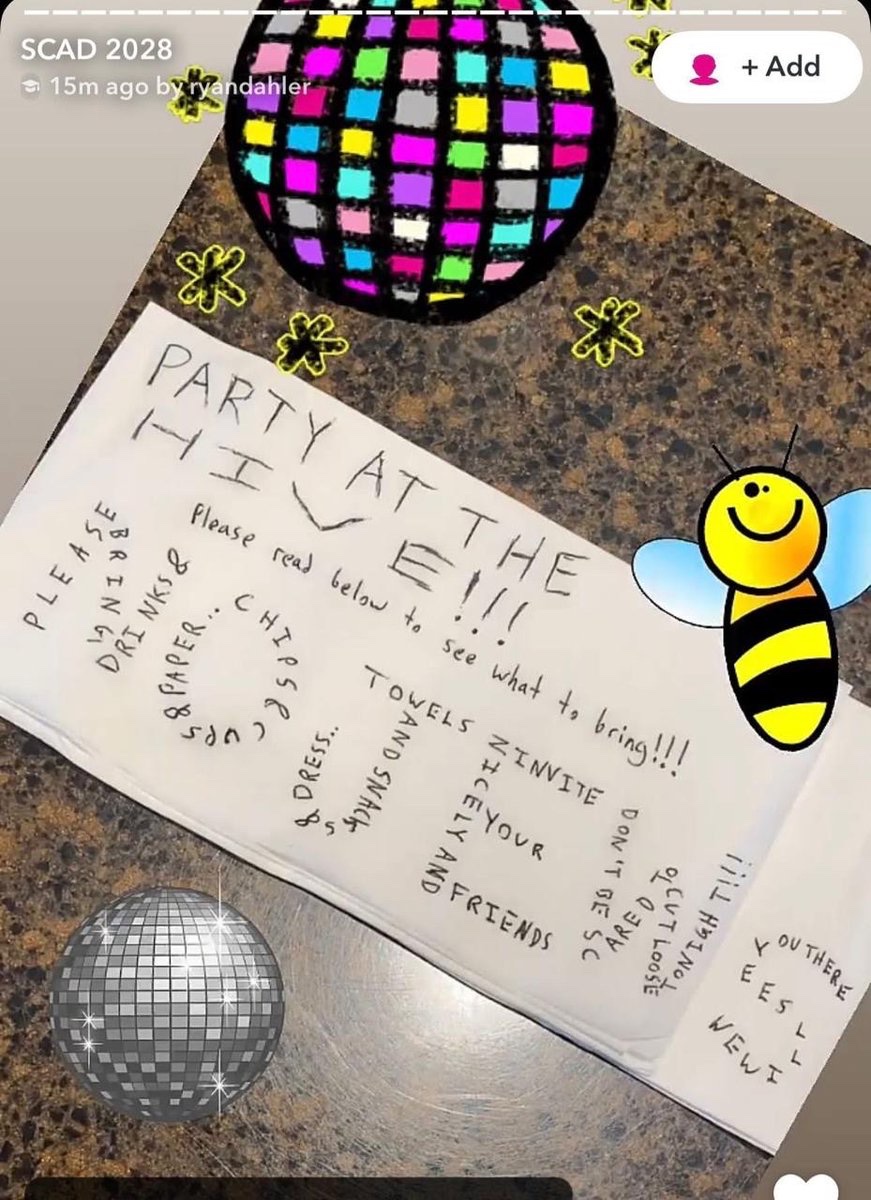 SCAD 2028
15m ago by ryandahler
+ Add
PARTY AT THE
HIVE!!!
Please read below to see what to bring!!!
PLEASE
BRING
DRINKS &
CHIPS & CUPS & PAPER..
TOWELS
AND SNACKS
& DRESS..
NICELY AND
INVITE
YOUR
FRIENDS
DON'T BE SC
ARED
TO
CUT LOOSE
TONIGHT!!!
WE WI
LL
SEE
YOU THERE